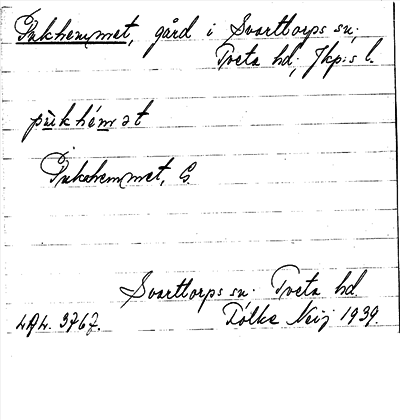 Pukhemmet, gård i Svarttorps sn,
Tveta hd, Jkp:s l.
pùkhémət
Pukehemmet, G.
Svarttorps sn. Tveta hd
LAL. 3767. Folke Neij 1939.